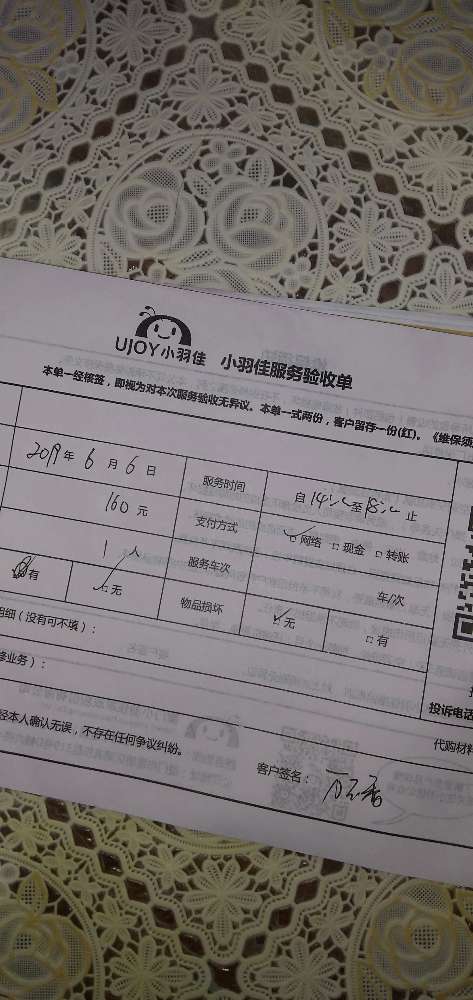 UJOY小羽佳 小羽佳服务验收单
本单一经核签，即视为对本次服务验收无异议。本单一式两份，客户留存一份(红)。《维保须
2019年6月6日 服务时间 自14:00至18:00止
160元 支付方式 网络 现金 转账
1人 服务车次 车/次
有 无 物品损坏 无 有
明细（没有可不填）：
修业务）：
投诉电话
代购材料
经本人确认无误，不存在任何争议纠纷。
客户签名：